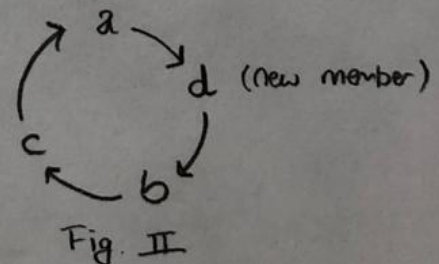 a
d (new member)
c
b
Fig. II